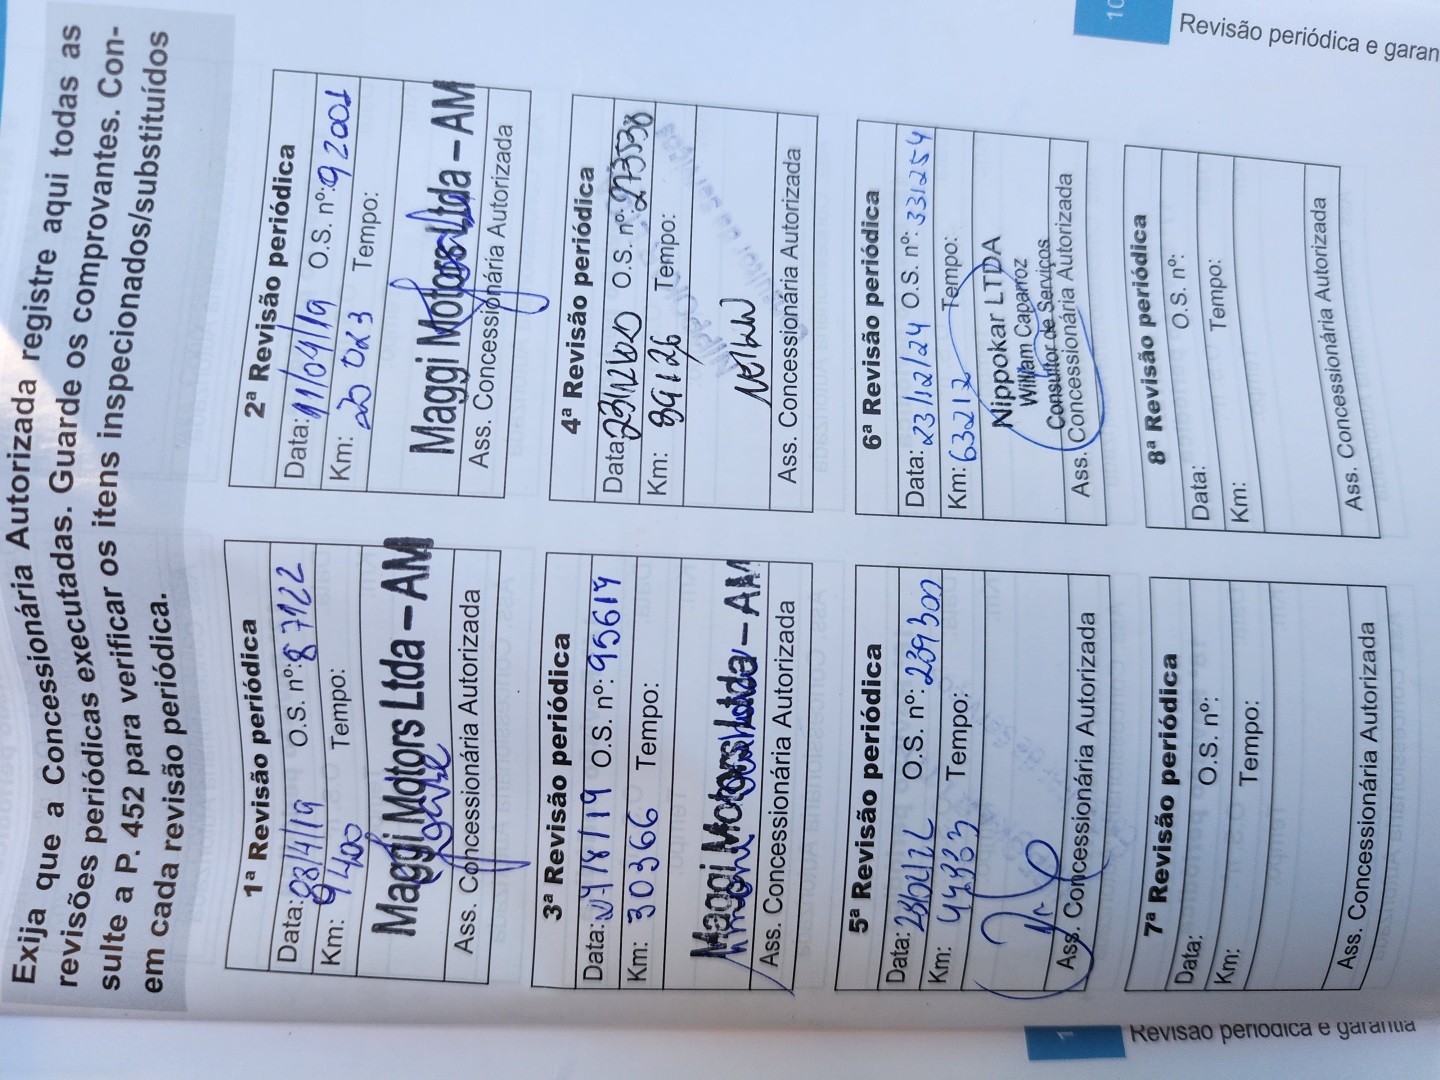 Exija que a Concessionária Autorizada registre aqui todas as
revisões periódicas executadas. Guarde os comprovantes. Con-
sulte a P. 452 para verificar os itens inspecionados/substituídos
em cada revisão periódica.
1ª Revisão periódica
Data: 08/4/19 O.S. nº: 87122
Km: 9400 Tempo:
Maggi Motors Ltda – AM
Ass. Concessionária Autorizada
2ª Revisão periódica
Data: 11/04/19 O.S. nº: 92001
Km: 20 043 Tempo:
Maggi Motors Ltda – AM
Ass. Concessionária Autorizada
3ª Revisão periódica
Data: /8/19 O.S. nº: 95619
Km: 30366 Tempo:
Maggi Motors Ltda – AM
Ass. Concessionária Autorizada
4ª Revisão periódica
Data: O.S. nº: 273538
Km: 39126 Tempo:
Ass. Concessionária Autorizada
5ª Revisão periódica
Data: O.S. nº: 239300
Km: 44333 Tempo:
Ass. Concessionária Autorizada
6ª Revisão periódica
Data: 23/12/24 O.S. nº: 331254
Km: 63212 Tempo:
Nippokar LTDA
William Caparroz
Consultor de Serviços
Ass. Concessionária Autorizada
7ª Revisão periódica
Data: O.S. nº:
Km: Tempo:
Ass. Concessionária Autorizada
8ª Revisão periódica
Data: O.S. nº:
Km: Tempo:
Ass. Concessionária Autorizada
Revisão periódica e garantia
10
Revisão periódica e garan